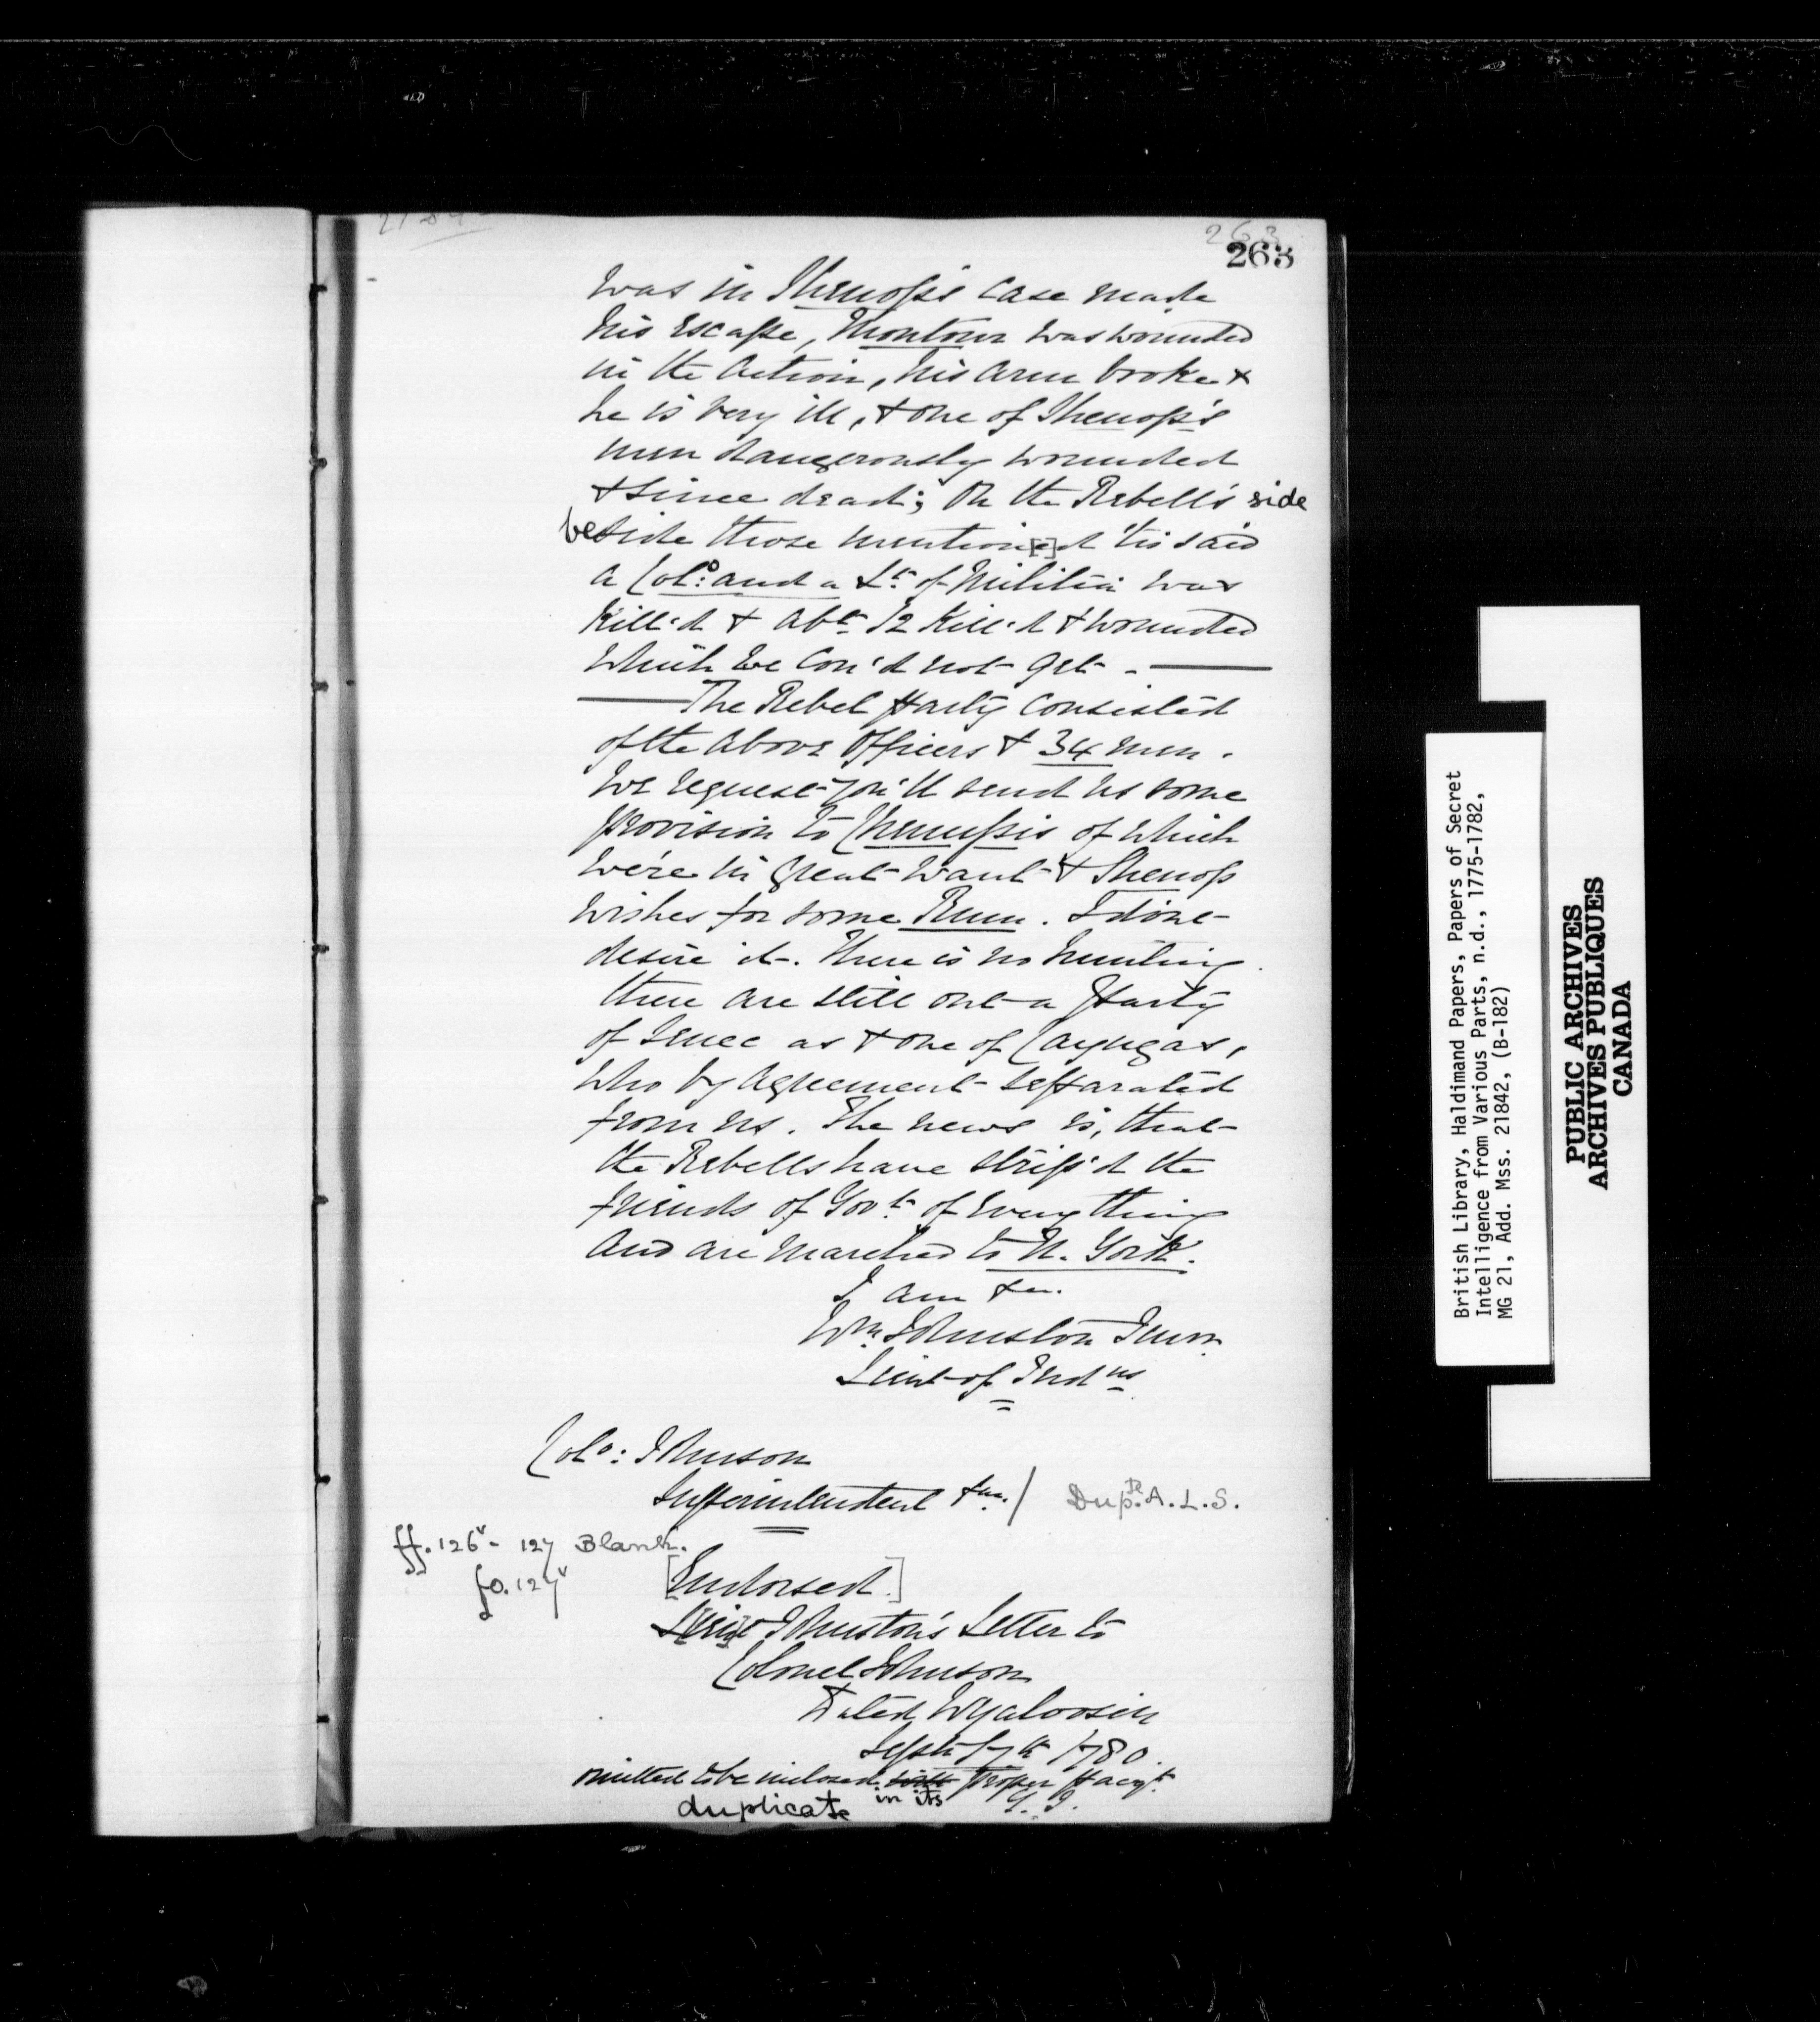 263
263
was in Shenop's case made
his Escape, Montour was wounded
in the Action, his arm broke &
he is very ill, & one of Shenop's
men dangerously wounded
& since dead; On the Rebell's side
beside those mention[e]d 'tis said
a Col:o and a Lt. of Militia was
Kill'd & abt. 12 Kill'd & wounded
which we Cou'd not get - 
The Rebel Party Consisted
of the above Officers & 34 men.
We request you'll send us some
provision to Chenussis of which
we're in great want & Shenop
wishes for some Rum. I don't
desire it. There is no hunting
there are still out a Party
of Senecas & one of Cayugas,
who by Agreement separated
from us. The news is, that
the Rebells have strip'd the
friends of Govt. of Every thing
And are marched to N. York.
I am &c.
Wm. Johnston Junr.
Lieut of Indns
Colo: Johnson
Superintendent &c. / Dupte. A. L. S.
ff. 126v - 127 Blank.
fo. 127v
[Endorsed]
Johnston's Letter to
Colonel Johnson
Dated Wyaloosin
Septr 17th 1780.
omitted to be inclosed in its proper Pacqt.
duplicate
British Library, Haldimand Papers, Papers of Secret
Intelligence from Various Parts, n.d., 1775-1782,
MG 21, Add. Mss. 21842, (B-182)
PUBLIC ARCHIVES
ARCHIVES PUBLIQUES
CANADA